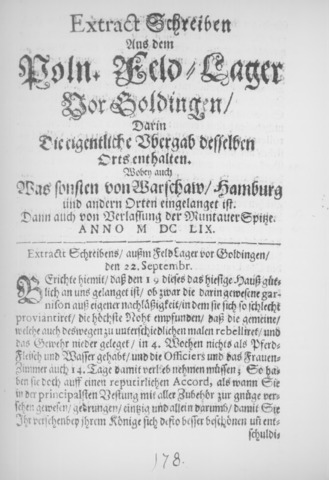 Extract Schreiben
Aus dem
Poln. Feld-Lager
Vor Goldingen/
Darin
Die eigentliche Vbergab desselben
Orts enthalten.
Wobey auch
Was sonsten von Warschaw/Hamburg
und andern Orten eingelanget ist.
Dann auch von Verlassung der Muntauer Spitze.
ANNO M DC LIX.
Extractt Schreibens/ außm Feld Lager vor Goldingen/
den 22. Septembr.
BErichte hiemit/ daß den 19 dieses das hiesige Hauß güt-
lich an uns gelanget ist/ ob zwar die darin gewesene gar-
nison auß eigener nachläßigkeit/ in dem sie sich so schlecht
proviantiret/ die höchste Noht empfunden/ daß die gemeine/
welche auch deswegen zu unterschiedlichen malen rebelliret/ und
das Gewehr nieder geleget/ in 4. Wochen nichts als Pferd-
Fleisch und Wasser gehabt/ und die Officiers und das Frauen-
Zimmer auch 14. Tage damit verlieb nehmen müssen; So ha-
ben sie doch auff einen reputirlichen Accord, als wann Sie
in der principalsten Vestung mit aller Zubehör zur gnüge ver-
sehen gewesen/ gedrungen/ eintzig und allein darumb/ damit Sie
Ihr versehen bey ihrem Könige sich desto besser beschönen uñ ent-
schuldi-
178.